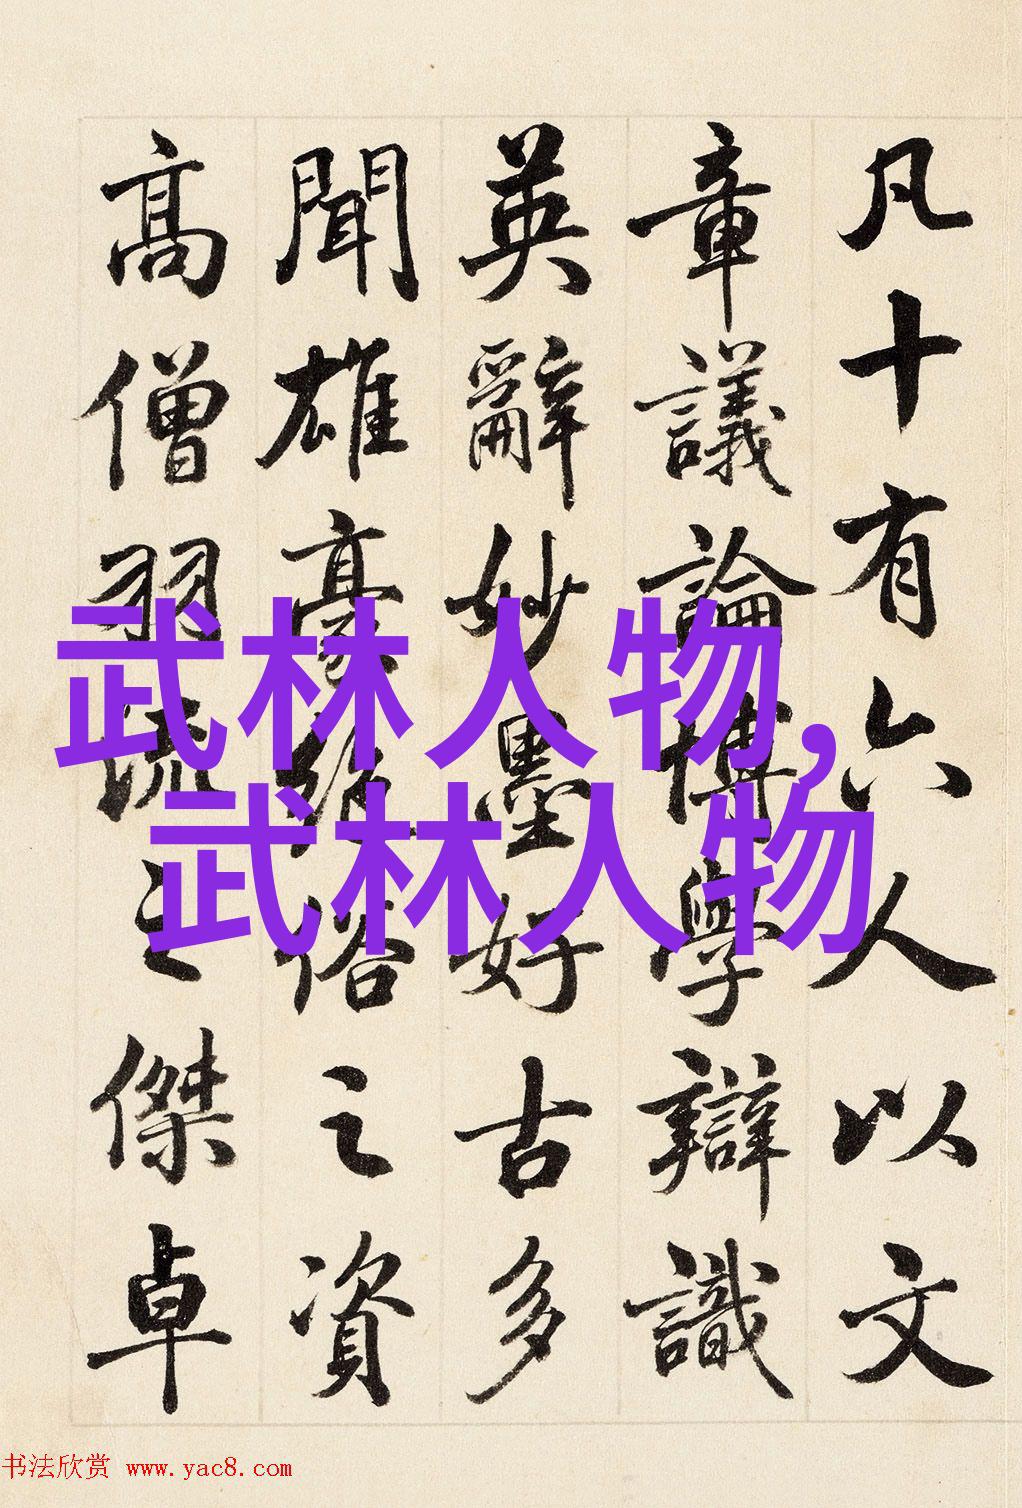 凡十有六人以文
章議論博學辯識
英辭妙墨好古多
聞雄豪絕俗之資
髙僧羽流之傑卓
武林人物,
武林人物
书法欣赏 www.yac8.com